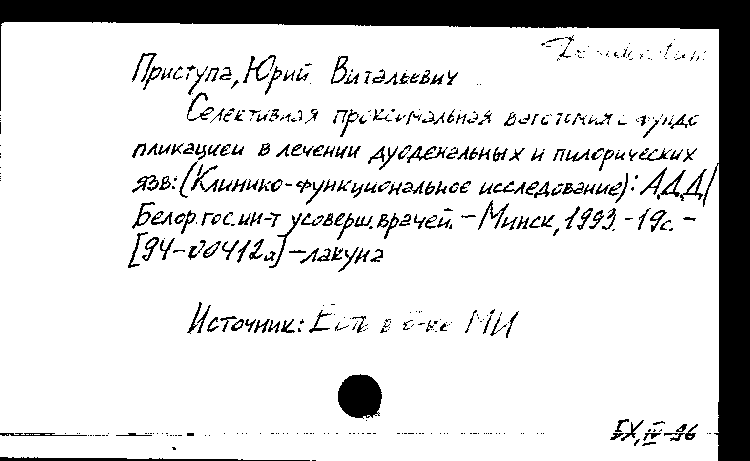 Приступа, Юрий Витальевич
Селективная проксимальная ваготомия с фундо
пликацией в лечении дуоденальных и пилорических
язв: (Клинико-функциональное исследование): А.Д.Д/
Белор.гос.ин-т усоверш.врачей. - Минск, 1993. - 19с. -
[94-00412а] - лакуна
Источник: Есть в б-ке МИ
БХ, IV-96